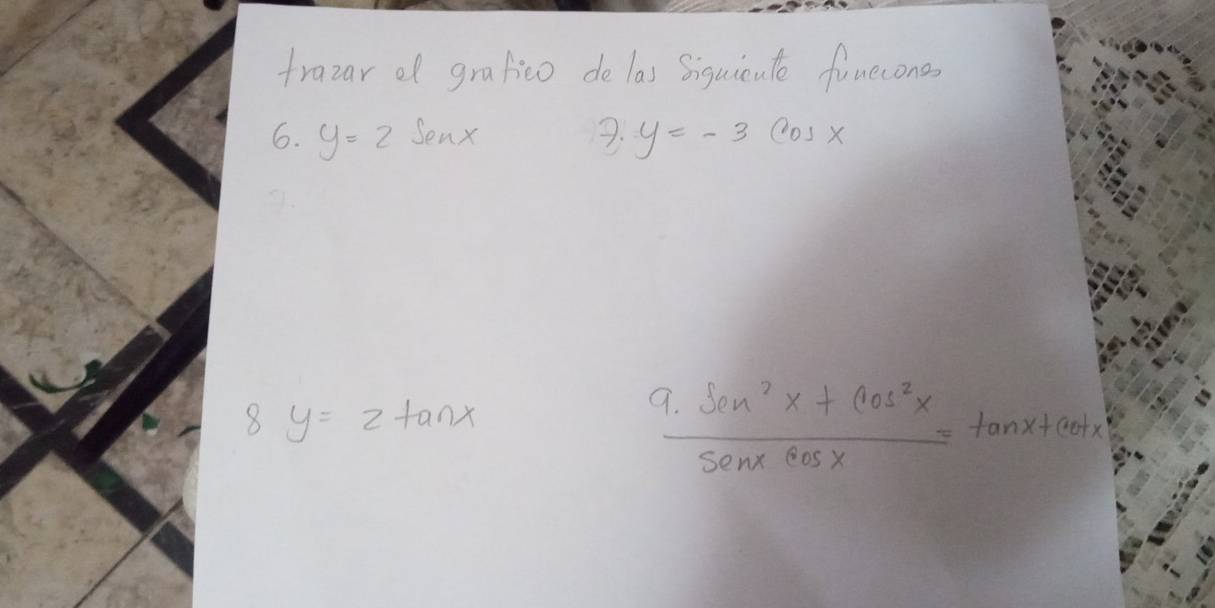 trazar el grafico de las Siguiente funciones
6. y = 2 Senx 7. y = - 3 Cos x
7.
8 y = 2 tanx
9. Sen² x + Cos² x / senx cos x = tanx + cotx